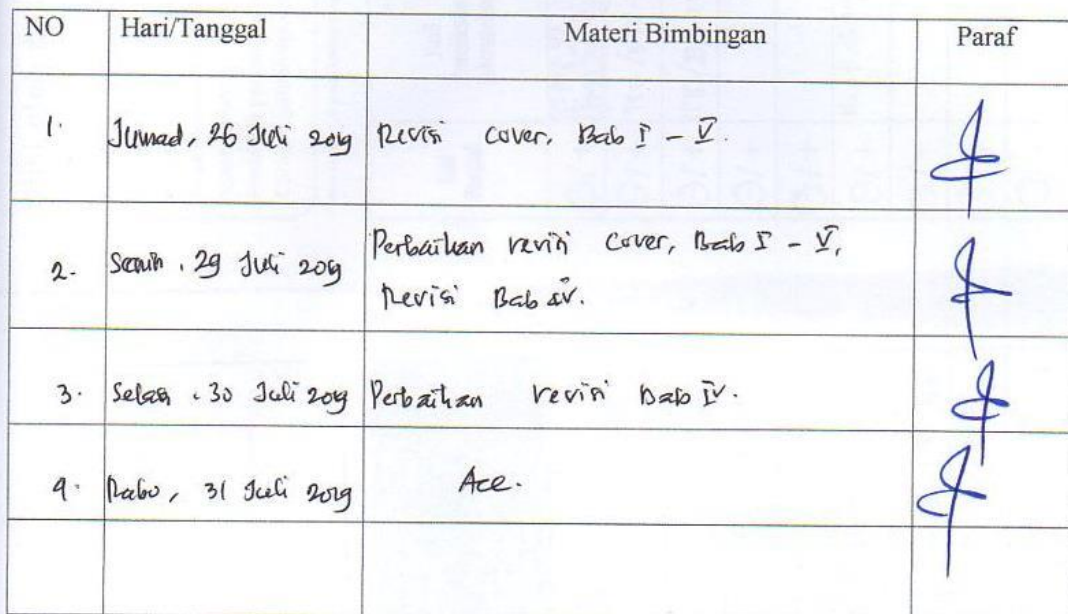 NO Hari/Tanggal Materi Bimbingan Paraf
1. Jumad, 26 Juli 2019 Revisi cover, Bab I - V.
2. Senin, 29 Juli 2019 Perbaikan revisi cover, Bab I - V,
Revisi Bab IV.
3. Selasa, 30 Juli 2019 Perbaikan revisi Bab IV.
4. Rabo, 31 Juli 2019 Acc.